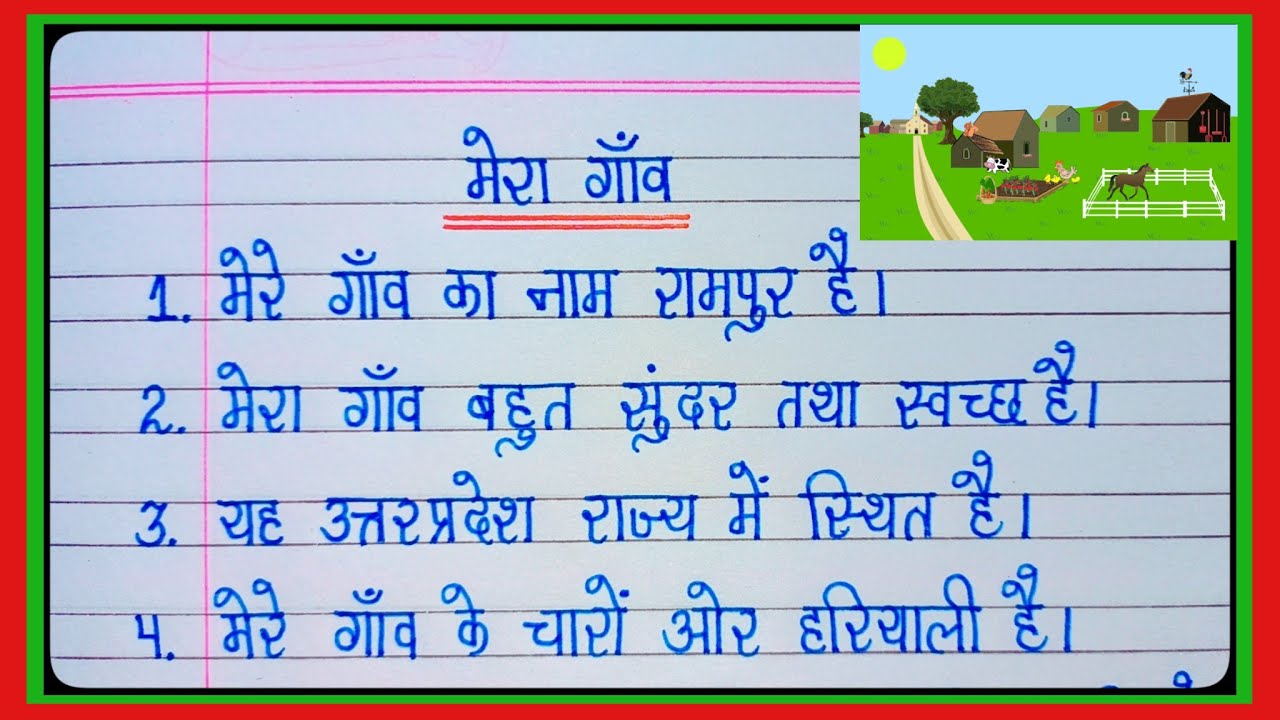 मेरा गाँव
1. मेरे गाँव का नाम रामपुर है।
2. मेरा गाँव बहुत सुंदर तथा स्वच्छ है।
3. यह उत्तरप्रदेश राज्य में स्थित है।
4. मेरे गाँव के चारों ओर हरियाली है।